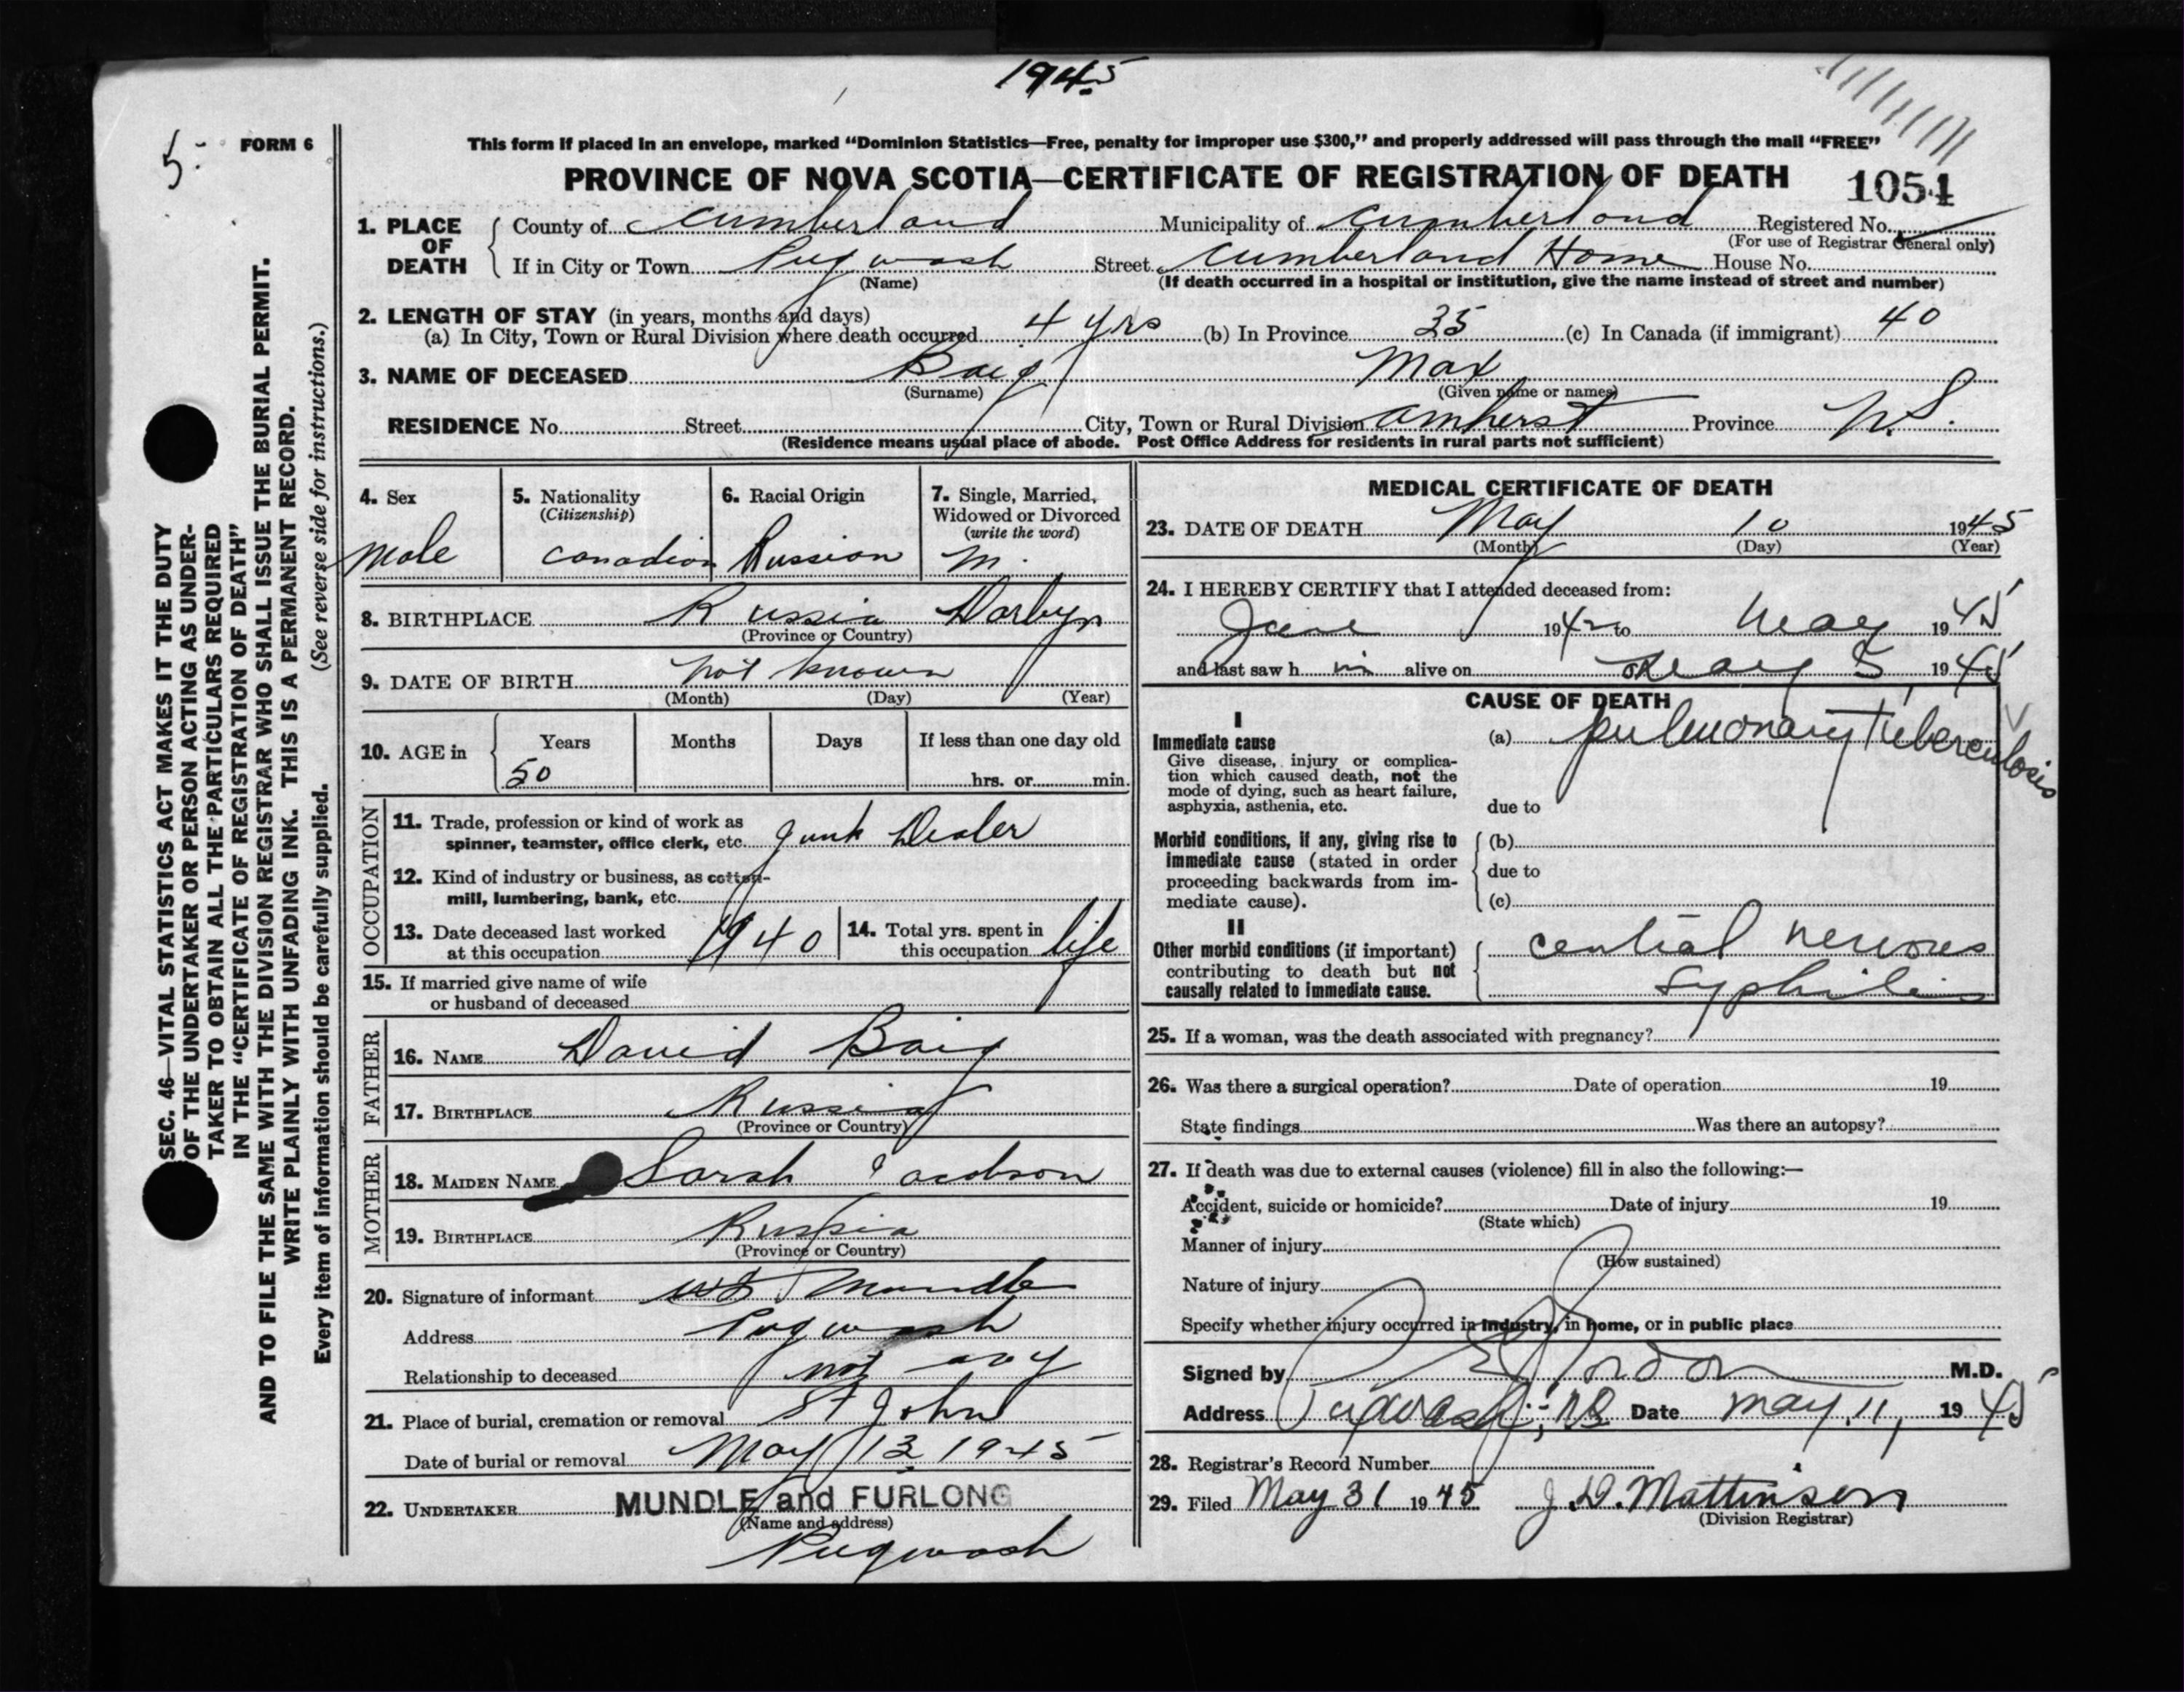 1945
5-
FORM 6
This form if placed in an envelope, marked "Dominion Statistics—Free, penalty for improper use $300," and properly addressed will pass through the mail "FREE"
PROVINCE OF NOVA SCOTIA—CERTIFICATE OF REGISTRATION OF DEATH 1054
SEC. 46—VITAL STATISTICS ACT MAKES IT THE DUTY
OF THE UNDERTAKER OR PERSON ACTING AS UNDER-
TAKER TO OBTAIN ALL THE PARTICULARS REQUIRED
IN THE "CERTIFICATE OF REGISTRATION OF DEATH"
AND TO FILE THE SAME WITH THE DIVISION REGISTRAR WHO SHALL ISSUE THE BURIAL PERMIT.
WRITE PLAINLY WITH UNFADING INK. THIS IS A PERMANENT RECORD.
Every item of information should be carefully supplied. (See reverse side for instructions.)
1. PLACE OF DEATH County of Cumberland Municipality of Cumberland Registered No.
(For use of Registrar General only)
If in City or Town Pugwash Street Cumberland Home House No.
(Name) (If death occurred in a hospital or institution, give the name instead of street and number)
2. LENGTH OF STAY (in years, months and days)
(a) In City, Town or Rural Division where death occurred 4 yrs (b) In Province 35 (c) In Canada (if immigrant) 40
3. NAME OF DECEASED Baig Max
(Surname) (Given name or names)
RESIDENCE No. Street City, Town or Rural Division Amherst Province N.S.
(Residence means usual place of abode. Post Office Address for residents in rural parts not sufficient)
4. Sex
Male
5. Nationality
(Citizenship)
Canadian
6. Racial Origin
Russian
7. Single, Married,
Widowed or Divorced
(write the word)
M.
8. BIRTHPLACE Russia
(Province or Country)
9. DATE OF BIRTH not known
(Month) (Day) (Year)
10. AGE in Years Months Days If less than one day old
50 hrs. or min.
OCCUPATION
11. Trade, profession or kind of work as
spinner, teamster, office clerk, etc. Junk Dealer
12. Kind of industry or business, as cotton-
mill, lumbering, bank, etc.
13. Date deceased last worked
at this occupation 1940
14. Total yrs. spent in
this occupation life
15. If married give name of wife
or husband of deceased
FATHER
16. NAME David Baig
17. BIRTHPLACE Russia
(Province or Country)
MOTHER
18. MAIDEN NAME Sarah Jacobson
19. BIRTHPLACE Russia
(Province or Country)
20. Signature of informant Mundle
Address Pugwash
Relationship to deceased not any
21. Place of burial, cremation or removal St John
Date of burial or removal May 13 1945
22. UNDERTAKER MUNDLE and FURLONG
(Name and address)
Pugwash
MEDICAL CERTIFICATE OF DEATH
23. DATE OF DEATH May 10 1945
(Month) (Day) (Year)
24. I HEREBY CERTIFY that I attended deceased from:
June 1942 to May 1945
and last saw h im alive on May 5, 1945
CAUSE OF DEATH
I
Immediate cause
Give disease, injury or complica-
tion which caused death, not the
mode of dying, such as heart failure,
asphyxia, asthenia, etc.
(a) pulmonary Tuberculosis
due to
Morbid conditions, if any, giving rise to
immediate cause (stated in order
proceeding backwards from im-
mediate cause).
(b)
due to
(c)
II
Other morbid conditions (if important)
contributing to death but not
causally related to immediate cause.
central nervous
syphilis
25. If a woman, was the death associated with pregnancy?
26. Was there a surgical operation? Date of operation 19
State findings Was there an autopsy?
27. If death was due to external causes (violence) fill in also the following:—
Accident, suicide or homicide? Date of injury 19
(State which)
Manner of injury
(How sustained)
Nature of injury
Specify whether injury occurred in industry, in home, or in public place
Signed by M.D.
Address Pugwash, NS Date May 11, 1945
28. Registrar's Record Number
29. Filed May 31 1945 J. D. Mattinson
(Division Registrar)